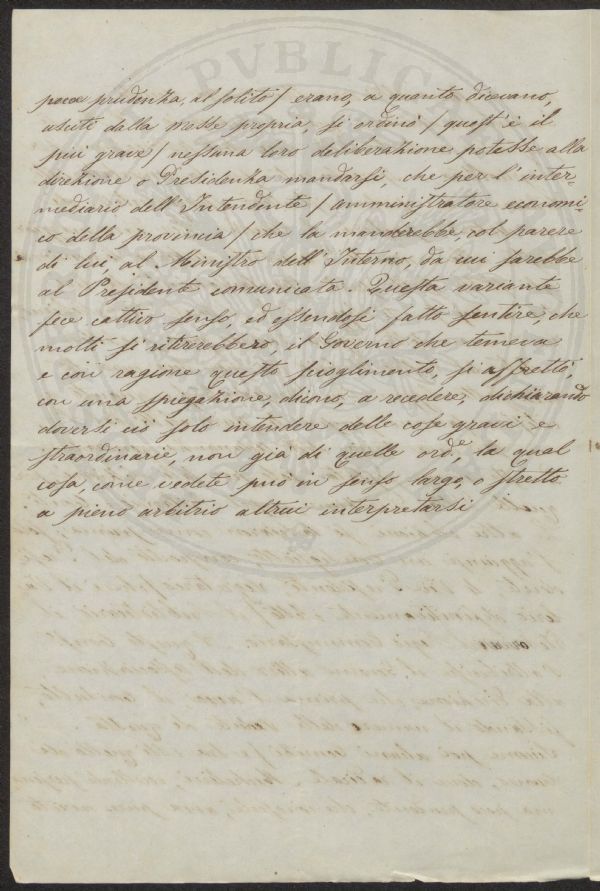 PVBLIC
poca prudenza, al solito / erano, a quanto dicevano,
usciti dalla messe propria, si ordinò / quest'è il
più grave / nessuna loro deliberazione potesse alla
direzione o Presidenza mandarsi, che per l'inter-
mediario dell'Intendente / amministratore economi-
co della provincia / che la manderebbe, col parere
di lui, al Ministro dell'Interno, da cui sarebbe
al Presidente comunicata. Questa variante
fece cattivo senso, ed essendosi fatto sentire, che
molti si ritirerebbero, il Governo che temeva
e con ragione questo scioglimento, si affrettò,
con una spiegazione, dicono, a recedere, dichiarando
doversi ciò solo intendere delle cose gravi e
straordinarie, non già di quelle ord.e, la qual
cosa, come vedete può in senso largo, o stretto
a pieno arbitrio altrui interpretarsi